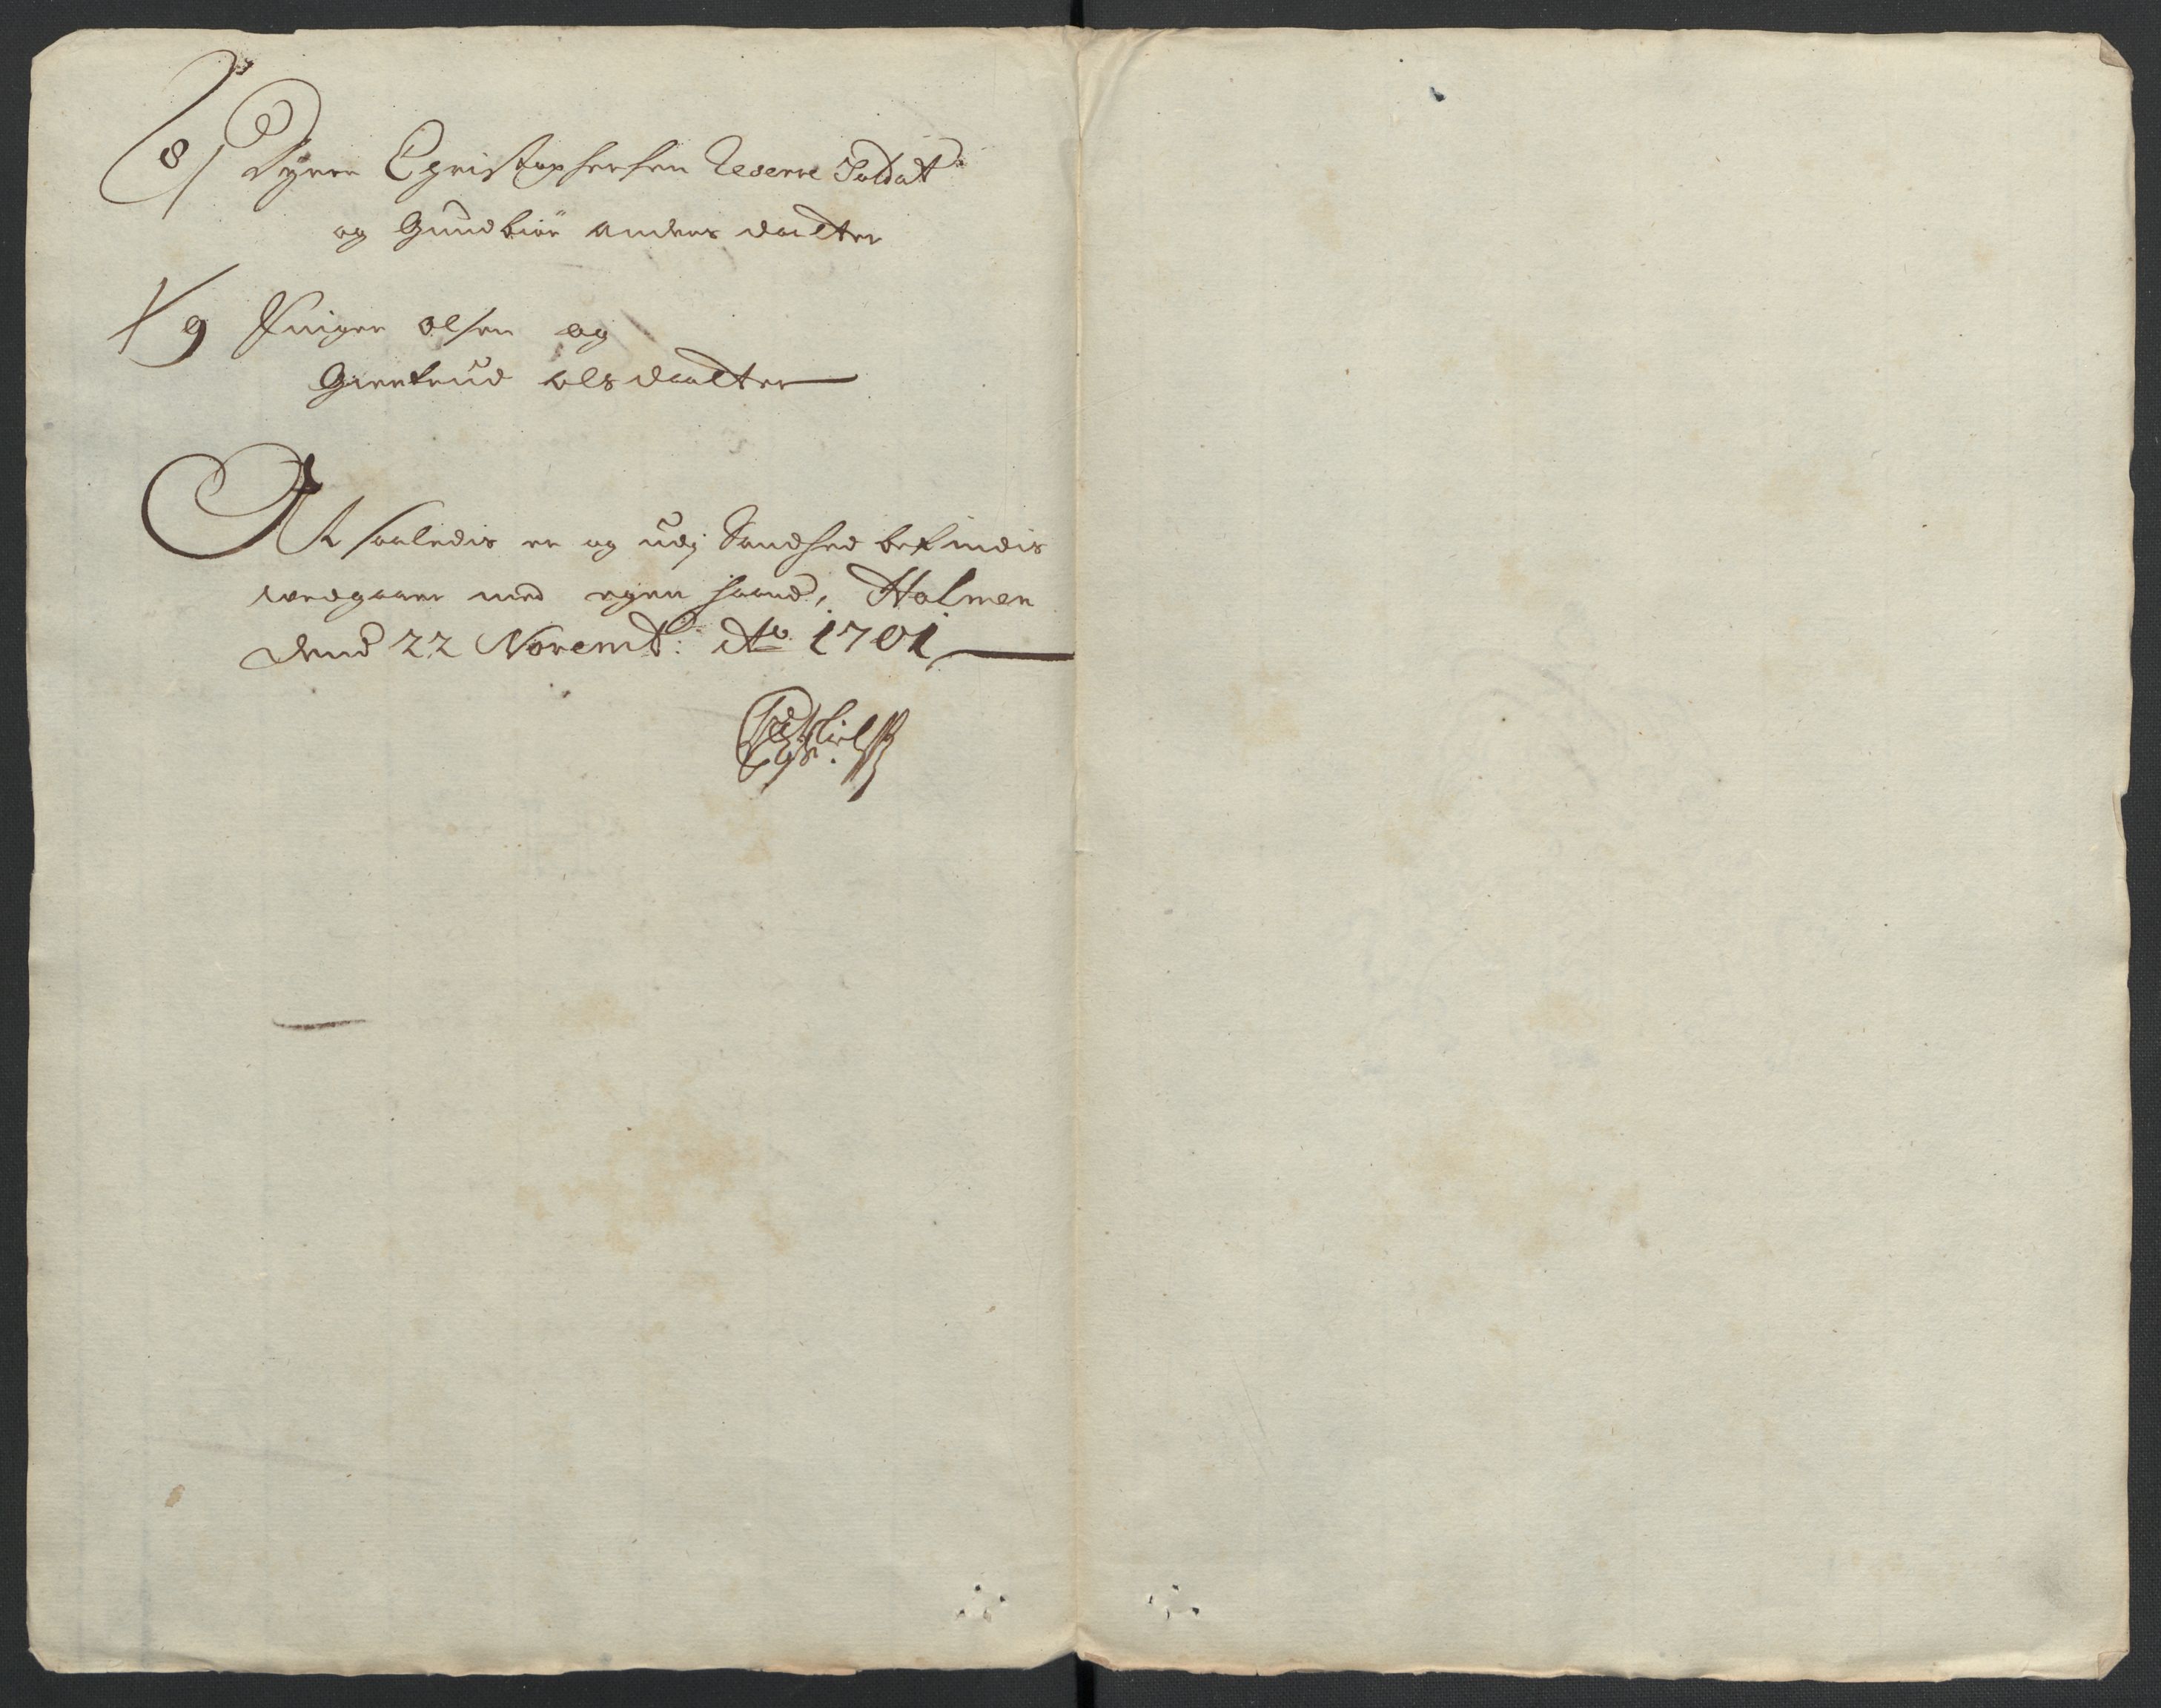 8 Dyrre Christophersen Reserve Soldat
og Gundbiør anders daatter
9 Tniger olsen og
Giertrud olsdaatter
At saaledis er og udj Sandhed befindis
wedgaaer med egen haand, Holmen
dend 22 Novemb: Ao 1701